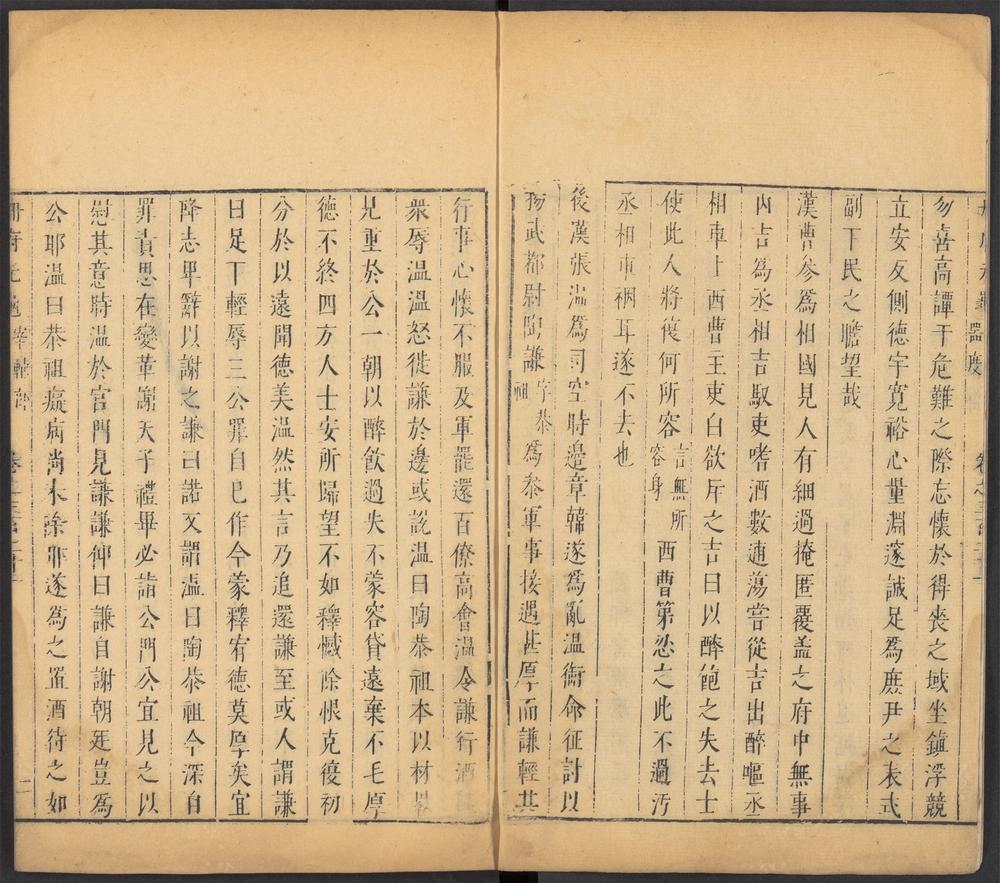 勿喜高譚于危難之際忘懷於得喪之域坐鎮浮競
立安反側德宇寬裕心量淵邃誠足爲庶尹之表式
副下民之瞻望哉
漢曹參爲相國見人有細過掩匿覆盖之府中無事
丙吉爲丞相吉馭吏嗜酒數逋蕩嘗從吉出醉嘔丞
相車上西曹主吏白欲斥之吉曰以醉飽之失去士
使此人將復何所容言無所容身西曹第忍之此不過汚
丞相車裀耳遂不去也
後漢張温爲司空時邊章韓遂爲亂温衘命征討以
揚武都尉陶謙字恭祖爲叅軍事接遇甚厚而謙輕其
行事心懷不服及軍罷還百僚高會温令謙行酒
衆辱温温怒徙謙於邊或説温曰陶恭祖本以材畧
見重於公一朝以醉飲過失不蒙容貸遠棄不毛厚
德不終四方人士安所歸望不如釋憾除恨克復初
分於以遠聞德美温然其言乃追還謙至或人謂謙
曰足下輕辱三公罪自已作今蒙釋宥德莫厚矣宜
降志卑辭以謝之謙曰諾又謂温曰陶恭祖今深自
罪責思在變革謝天子禮畢必詣公門公宜見之以
慰其意時温於宮門見謙謙仰曰謙自謝朝廷豈爲
公耶温曰恭祖癡病尚未除耶遂爲之置酒待之如
二